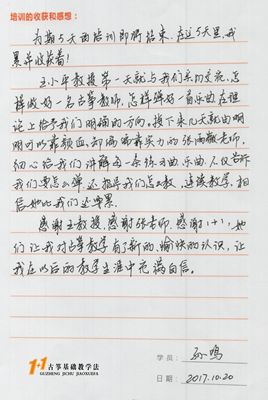 培训的收获和感想：
为期5天的培训即将结束，在这5天里，我
累并收获着！
王小平教授第一天就与我们亲切交流，怎
样做好一名古筝教师，怎样弹好一首乐曲在理
论上给予我们明确的方向。接下来几天就由明
明可以靠颜值，却偏偏靠实力的张雨薇老师，
细心给我们讲解每一条练习曲乐曲，不仅告诉
我们要怎么弹还指导我们怎么教，连续教学，相
信她比我们还要累。
感谢王教授，感谢张老师，感谢1+1，她
们让我对古筝教学有了新的、愉快的认识，让
我在以后的教学生涯中充满自信。
1+1古筝基础教学法
GUZHENG JICHU JIAOXUEFA
学员：孙鸣
日期：2017.10.20